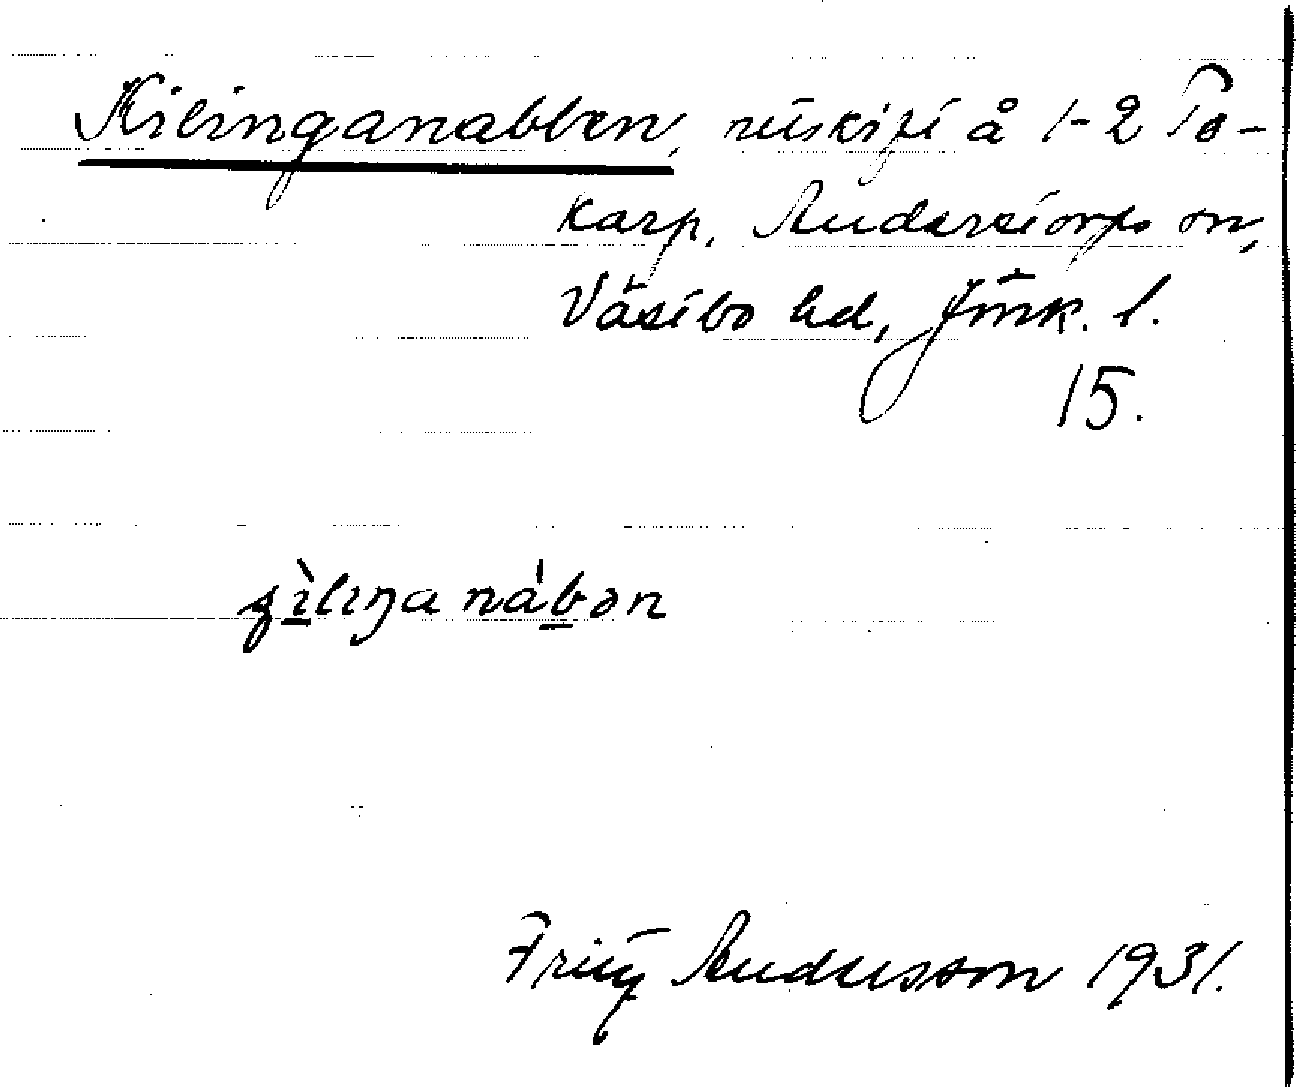 Kilinganabben, utskift å 1-2 To-
karp, Anderstorps sn,
Västbo hd, Jönk. l.
15.
Fritz Andersson 1931.